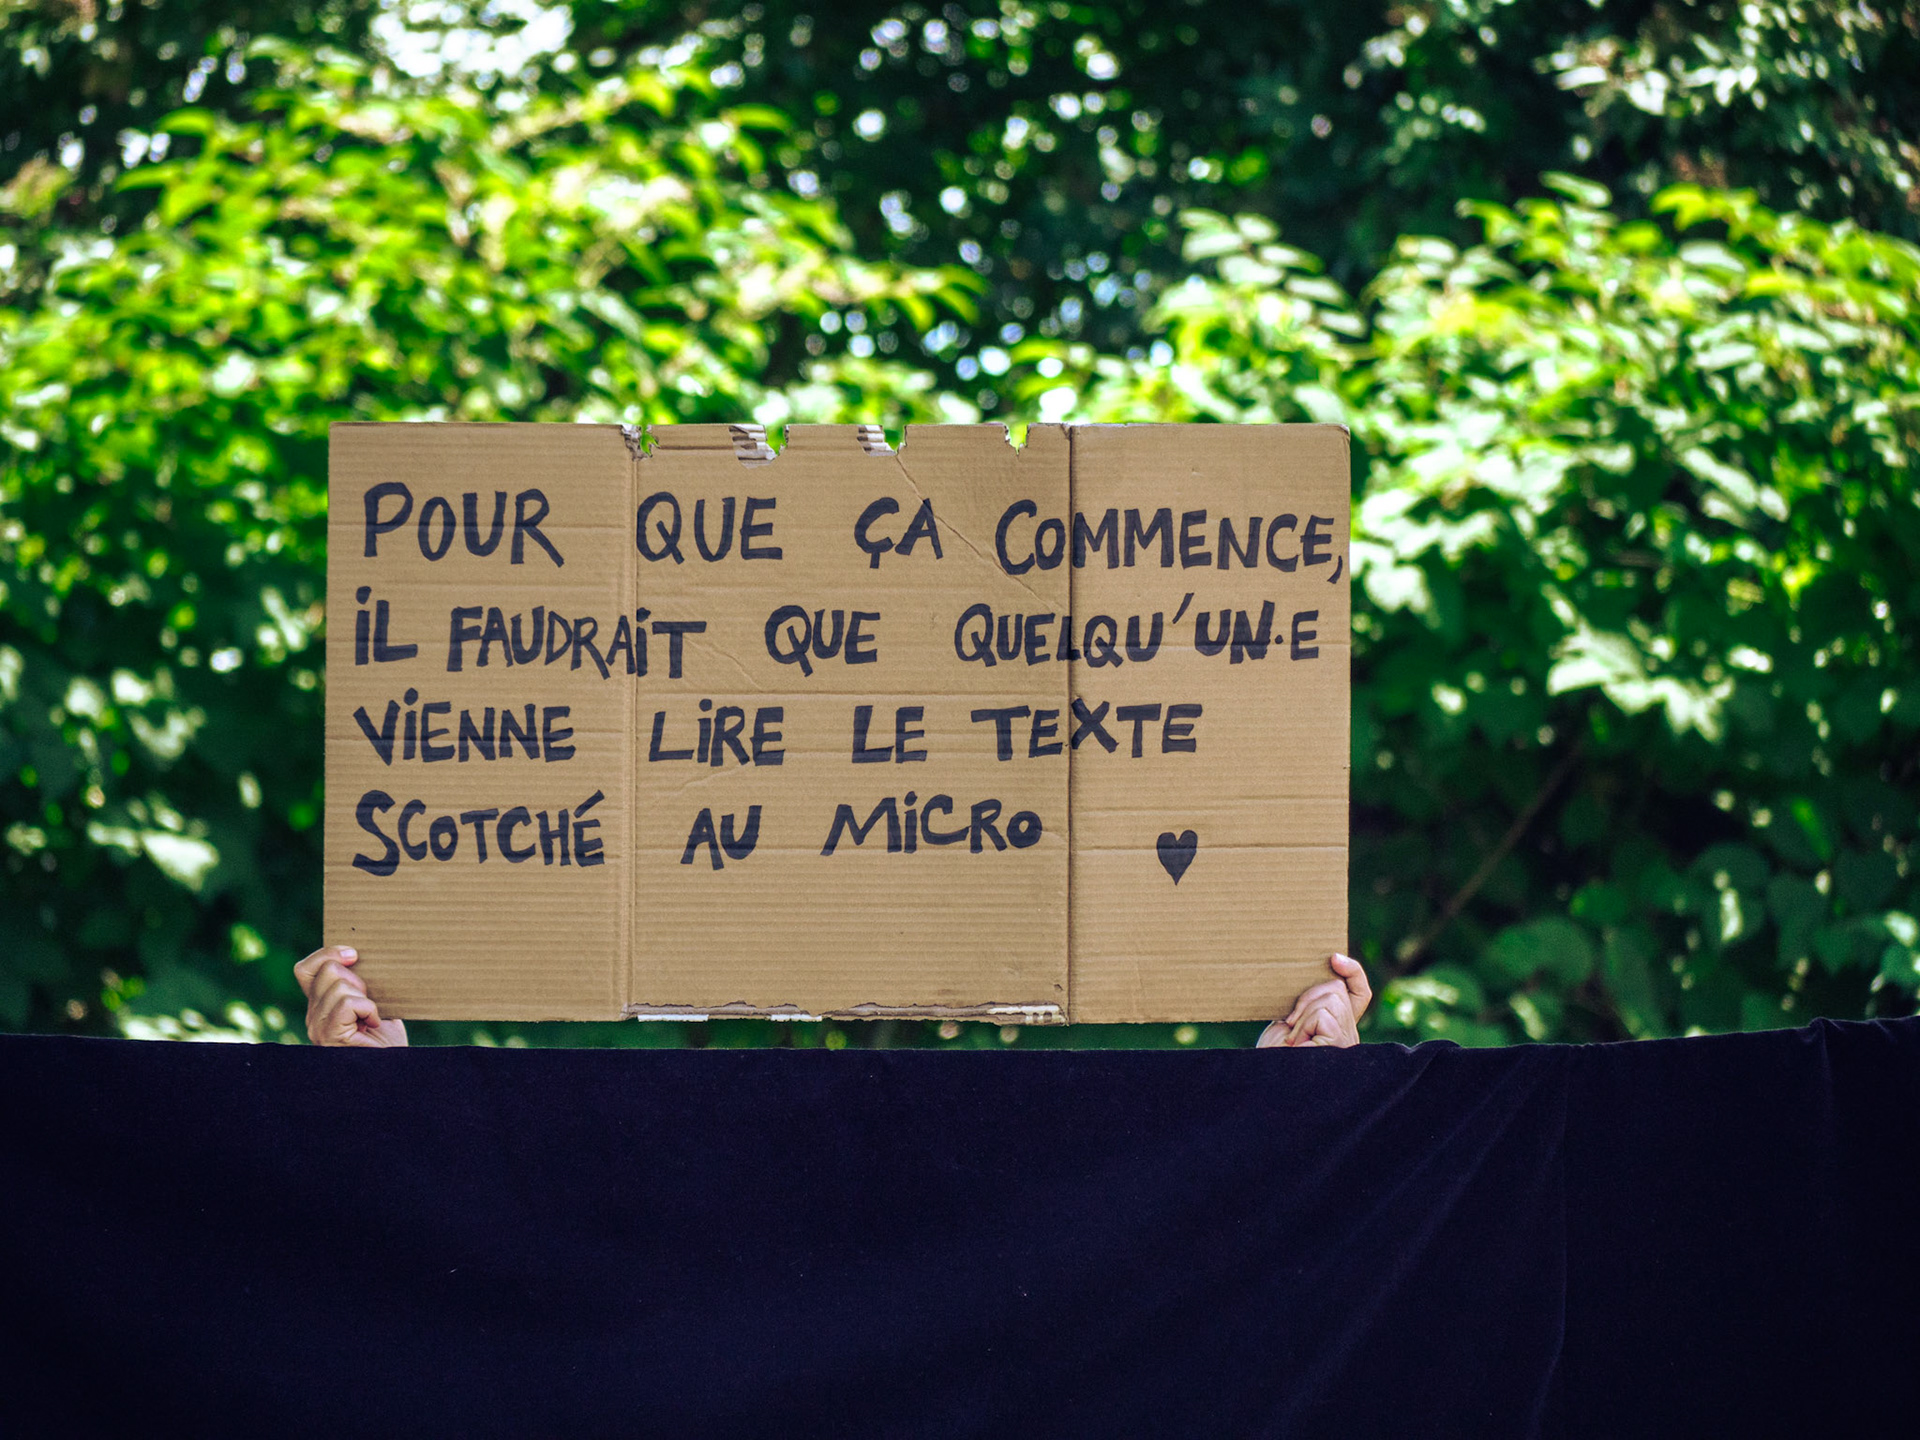 POUR QUE ÇA COMMENCE,
IL FAUDRAIT QUE QUELQU'UN·E
VIENNE LIRE LE TEXTE
SCOTCHÉ AU MICRO ♥